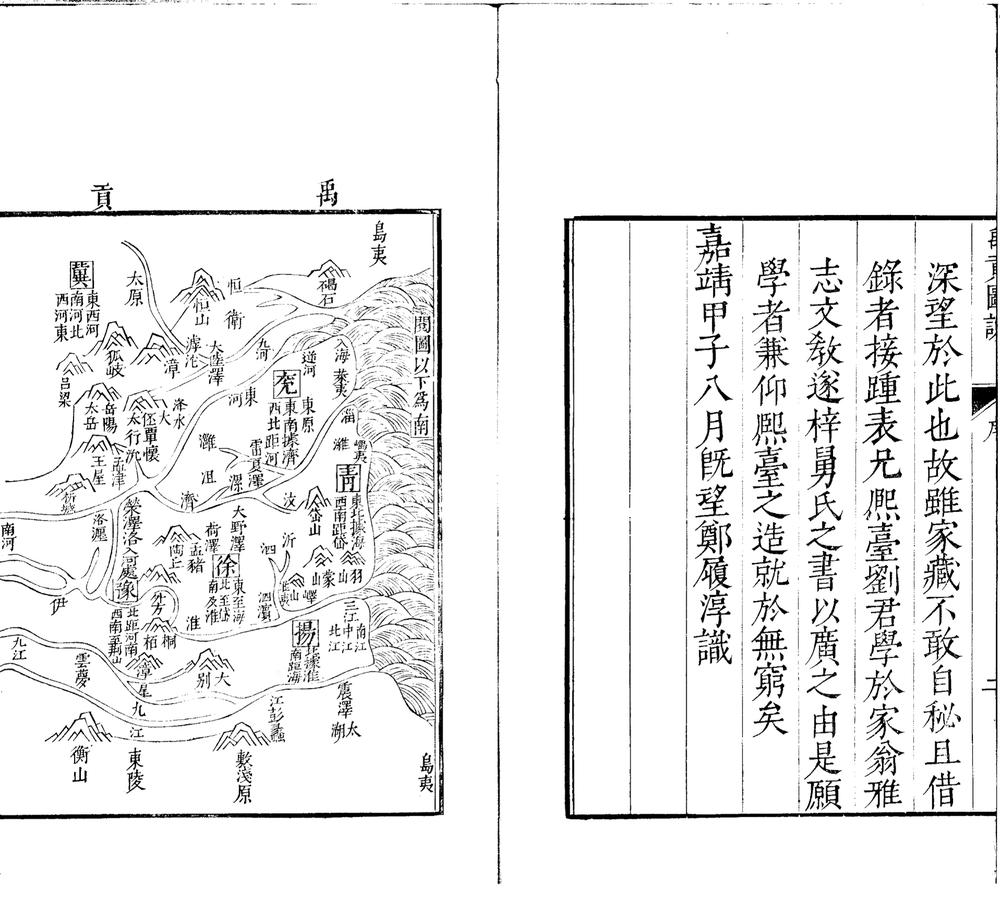 禹貢圖説
序
二
深望於此也故雖家藏不敢自秘且借
錄者接踵表兄熈臺劉君學於家翁雅
志文敎遂梓舅氏之書以廣之由是願
學者兼仰熈臺之造就於無窮矣
嘉靖甲子八月旣望鄭履淳識
禹
貢
閱圖以下爲南
島夷
碣石
恒
衛
恒山
太原
冀
東西河
南河北
西河東
狐岐
呂梁
滹沱
大陸澤
漳
九河
逆河
入海
萊夷
兗
東南據濟
西北距河
東原
東河
雷夏澤
灉
沮
漯
濟
汶
淄
濰
嵎夷
青
東北據海
西南距岱
岱山
岳陽
太岳
覃懷
太行
沇
王屋
孟津
析城
洛
瀍
滎澤
洛入河處
南河
伊
豫
北距河南
西南至荊山
外方
桐
栢
淮
陶丘
荷澤
孟豬
大野澤
徐
東至海
北至岱
南及淮
沂
泗
泗濱
羽山
蒙山
嶧
揚
北據淮
南距海
三江
南江
中江
北江
震澤
太湖
江
彭蠡
敷淺原
大別
漳
星
九江
東陵
雲夢
九江
衡山
島夷